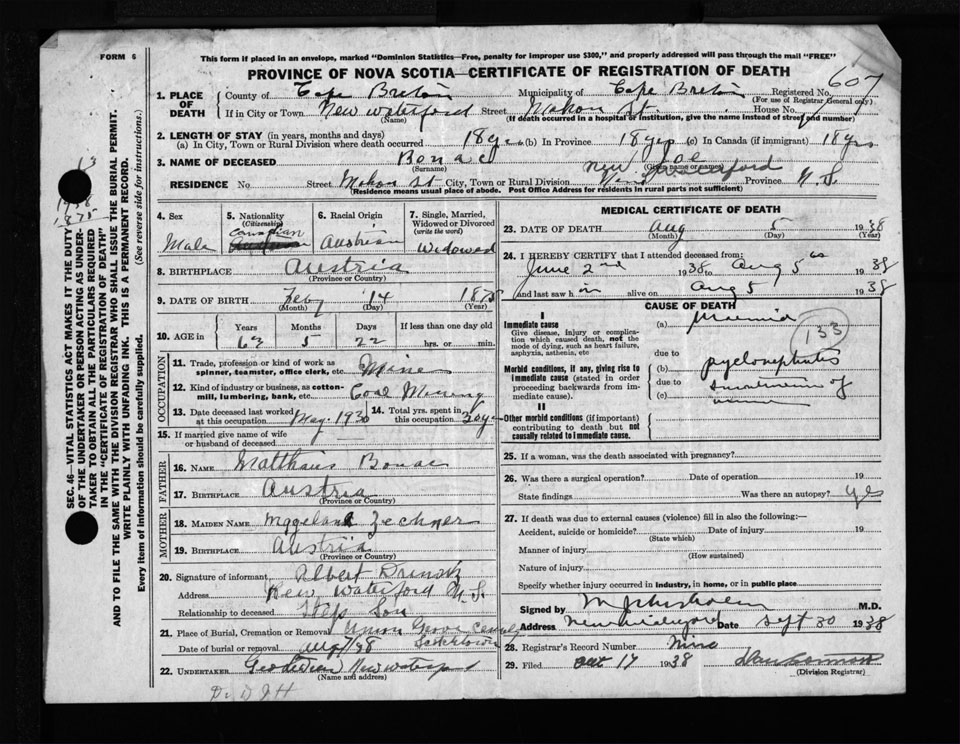 FORM 6
This form if placed in an envelope, marked "Dominion Statistics—Free, penalty for improper use $300," and properly addressed will pass through the mail "FREE"
PROVINCE OF NOVA SCOTIA—CERTIFICATE OF REGISTRATION OF DEATH
607
1. PLACE OF DEATH County of Cape Breton Municipality of Cape Breton Registered No. (For use of Registrar General only)
If in City or Town New Waterford (Name) Street Mahon St. House No.
(If death occurred in a hospital or institution, give the name instead of street and number)
2. LENGTH OF STAY (in years, months and days)
(a) In City, Town or Rural Division where death occurred 18 yrs (b) In Province 18 yrs (c) In Canada (if immigrant) 18 yrs
3. NAME OF DECEASED Bonac (Surname) Joe (Given name or names)
RESIDENCE No Street Mahon St City, Town or Rural Division New Waterford Province N.S.
(Residence means usual place of abode. Post Office Address for residents in rural parts not sufficient)
4. Sex Male
5. Nationality (Citizenship) Canadian
6. Racial Origin Austrian
7. Single, Married, Widowed or Divorced (write the word) Widowed
8. BIRTHPLACE Austria (Province or Country)
9. DATE OF BIRTH Feby (Month) 14 (Day) 1875 (Year)
10. AGE in Years 63 Months 5 Days 22 If less than one day old hrs. or min.
OCCUPATION
11. Trade, profession or kind of work as spinner, teamster, office clerk, etc. Mine
12. Kind of industry or business, as cotton-mill, lumbering, bank, etc. Coal Mining
13. Date deceased last worked at this occupation May. 1930 14. Total yrs. spent in this occupation 30 yrs
15. If married give name of wife or husband of deceased
FATHER
16. NAME Matthaus Bonac
17. BIRTHPLACE Austria (Province or Country)
MOTHER
18. MAIDEN NAME Zechner
19. BIRTHPLACE Austria (Province or Country)
20. Signature of informant Albert
Address New Waterford N.S.
Relationship to deceased Step Son
21. Place of Burial, Cremation or Removal Union Grove
Date of burial or removal
22. UNDERTAKER New Waterford (Name and address)
MEDICAL CERTIFICATE OF DEATH
23. DATE OF DEATH Aug (Month) 5 (Day) 1938 (Year)
24. I HEREBY CERTIFY that I attended deceased from:
June 2nd 1938 to Aug 5th 1938
and last saw him alive on Aug 5 1938
CAUSE OF DEATH
I
Immediate cause
Give disease, injury or complication which caused death, not the mode of dying, such as heart failure, asphyxia, asthenia, etc
(a)
133
due to
Morbid conditions, if any, giving rise to immediate cause (stated in order proceeding backwards from immediate cause).
(b) pyelonephritis
due to
(c) of
II
Other morbid conditions (if important) contributing to death but not causally related to immediate cause.
25. If a woman, was the death associated with pregnancy?
26. Was there a surgical operation? Date of operation 19
State findings Was there an autopsy? yes
27. If death was due to external causes (violence) fill in also the following:—
Accident, suicide or homicide? (State which) Date of injury 19
Manner of injury (How sustained)
Nature of injury
Specify whether injury occurred in industry, in home, or in public place
Signed by M.D.
Address New Waterford Date Sept 30 1938
28. Registrar's Record Number
29. Filed Oct 17 1938 (Division Registrar)
SEC. 46—VITAL STATISTICS ACT MAKES IT THE DUTY OF THE UNDERTAKER OR PERSON ACTING AS UNDERTAKER TO OBTAIN ALL THE PARTICULARS REQUIRED IN THE "CERTIFICATE OF REGISTRATION OF DEATH" AND TO FILE THE SAME WITH THE DIVISION REGISTRAR WHO SHALL ISSUE THE BURIAL PERMIT.
WRITE PLAINLY WITH UNFADING INK. THIS IS A PERMANENT RECORD.
Every item of information should be carefully supplied. (See reverse side for instructions.)